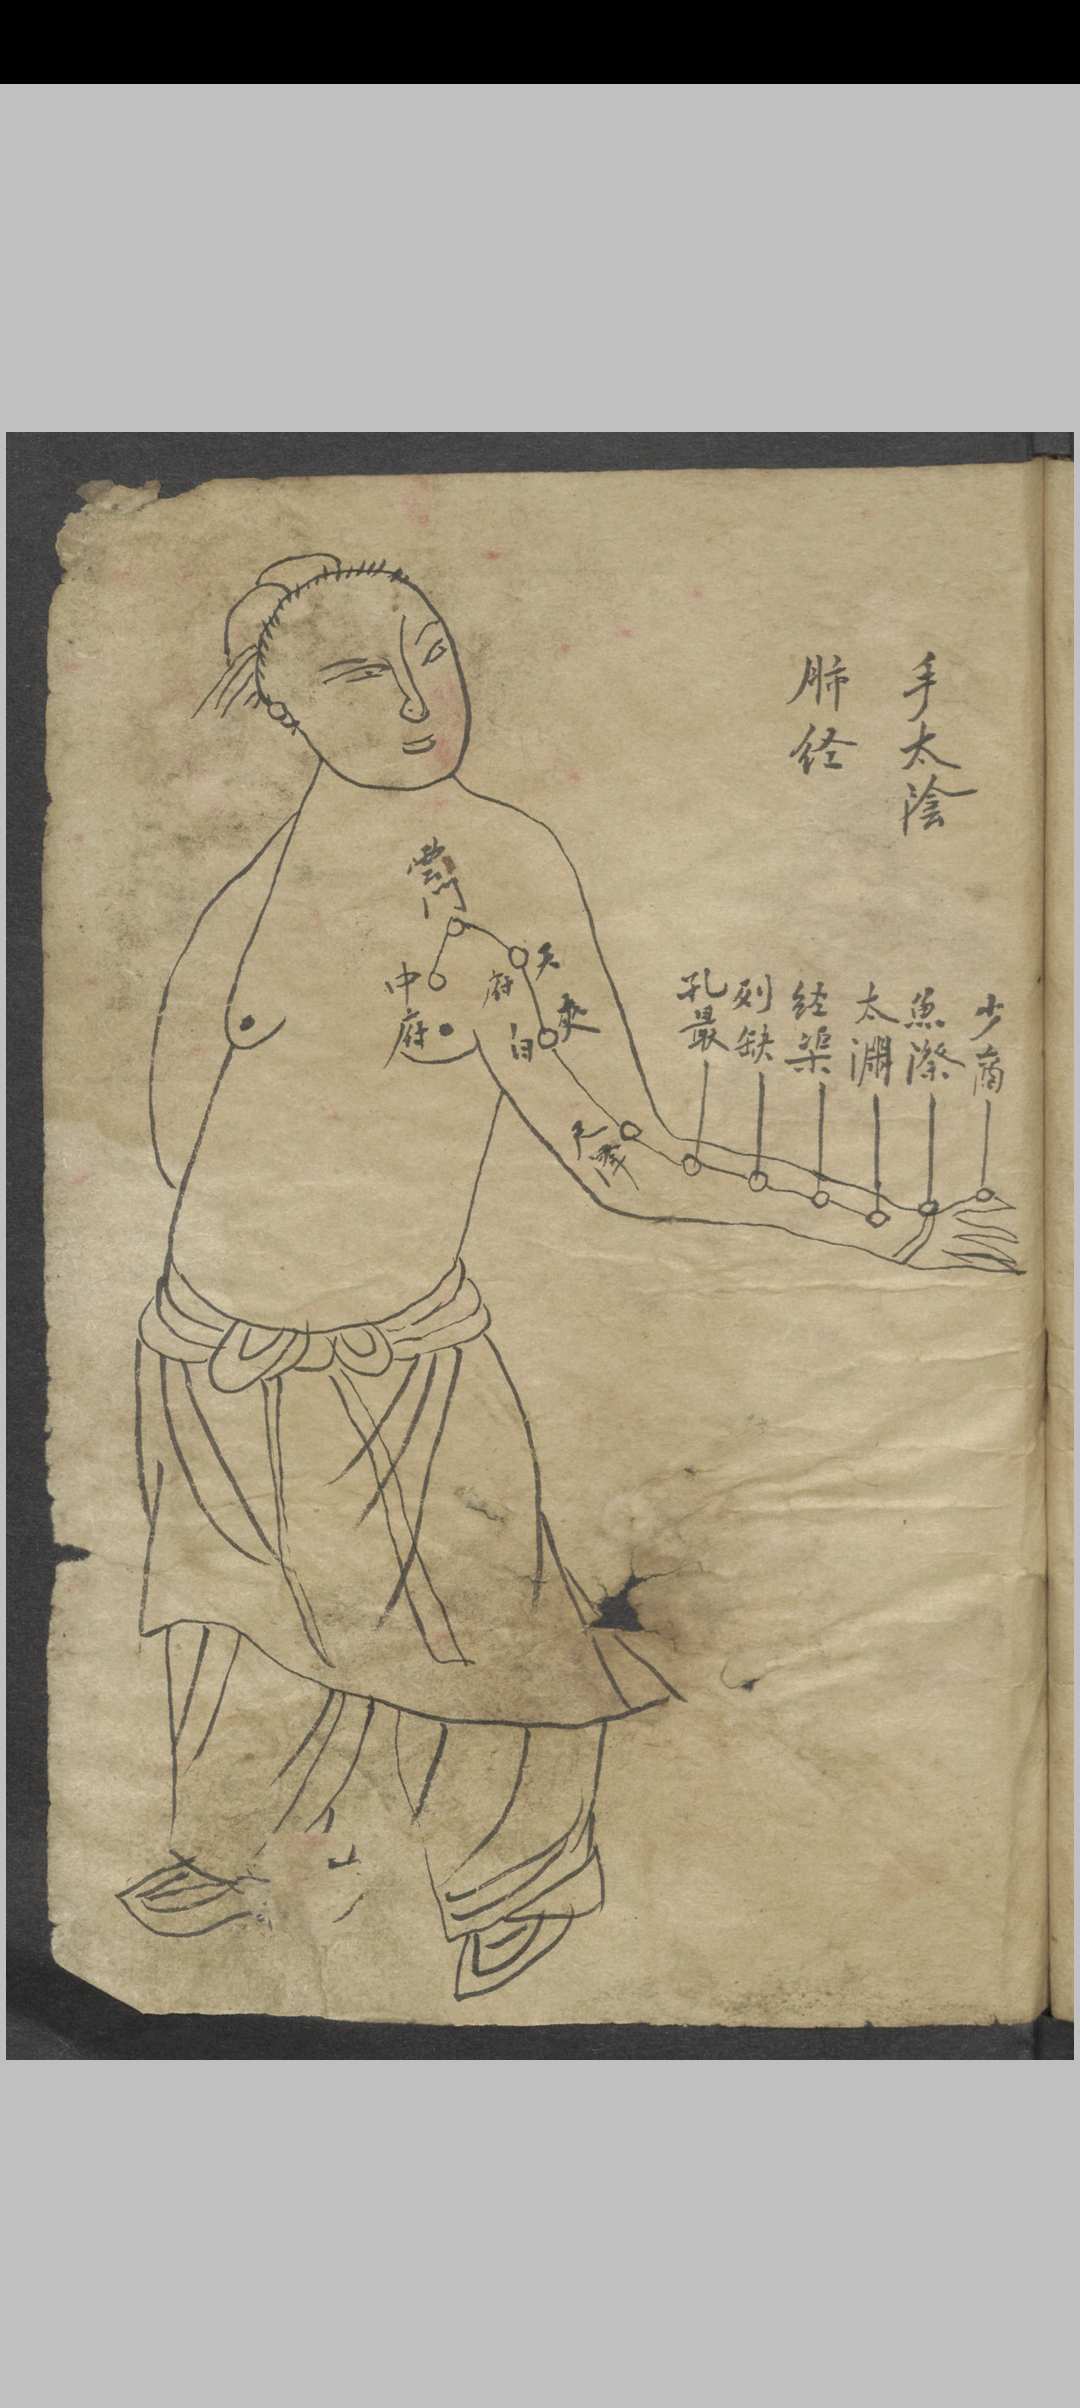 手太陰
肺经
少商
魚際
太淵
经渠
列缺
孔最
尺澤
夾白
天府
雲門
中府